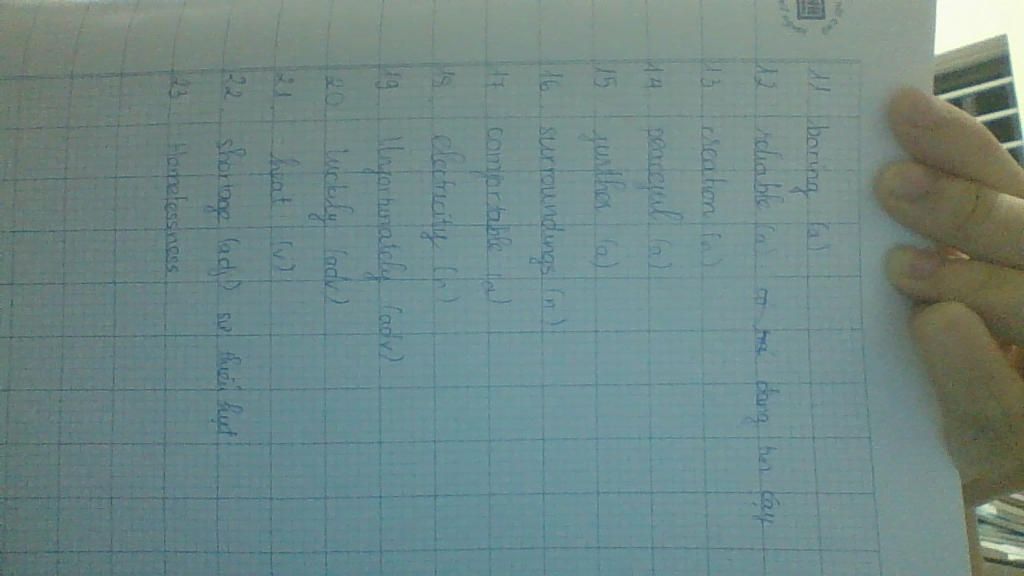 11 boring (a)
12 reliable (a) có thể đáng tin cậy
13 creation (n)
14 peaceful (a)
15 further (a)
16 surroundings (n)
17 comfortable (a)
18 electricity (n)
19 Unfortunately (adv)
20 luckily (adv)
21 (v)
22 shortage (adj) sự thiếu hụt
23 Homelessness